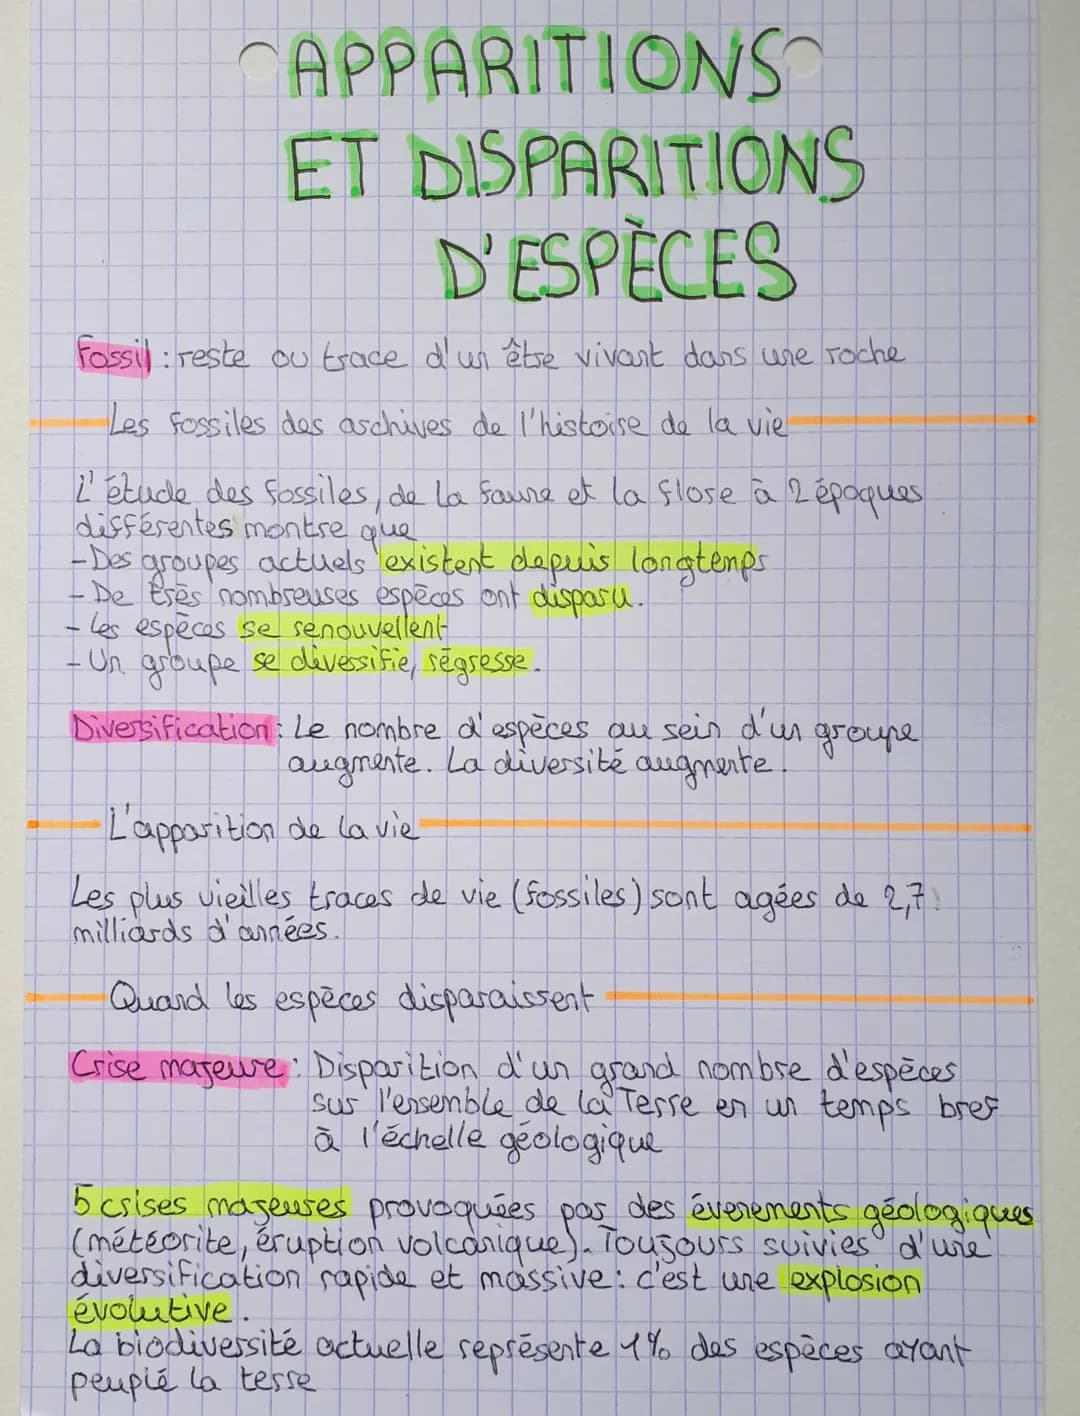 APPARITIONS
ET DISPARITIONS
D'ESPÈCES
Fossil : reste ou trace d'un être vivant dans une roche
Les fossiles des archives de l'histoire de la vie
L'étude des fossiles, de la faune et la flore à 2 époques
différentes montre que
-Des groupes actuels existent depuis longtemps
- De très nombreuses espèces ont disparu.
- Les espèces se renouvellent
- Un groupe se diversifie, régresse.
Diversification : Le nombre d'espèces au sein d'un groupe
augmente. La diversité augmente.
L'apparition de la vie
Les plus vieilles traces de vie (fossiles) sont agées de 2,7
milliards d'années.
Quand les espèces disparaissent
Crise majeure : Disparition d'un grand nombre d'espèces
sur l'ensemble de la Terre en un temps bref
à l'échelle géologique
5 crises majeures provoquées par des évenements géologiques
(météorite, éruption volcanique). Toujours suivies d'une
diversification rapide et massive : c'est une explosion
évolutive.
La biodiversité actuelle représente 1% des espèces ayant
peuplé la terre